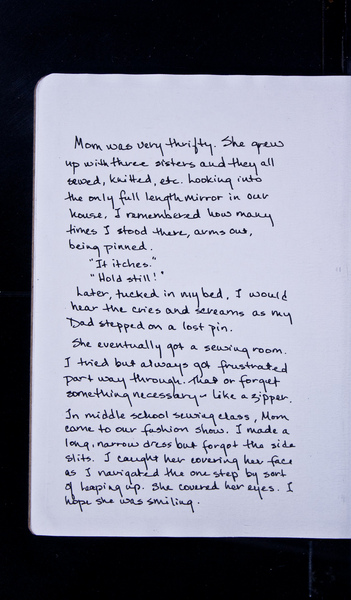 Mom was very thrifty. She grew
up with three sisters and they all
sewed, knitted, etc. Looking into
the only full length mirror in our
house, I remembered how many
times I stood there, arms out,
being pinned.
"It itches."
"Hold still!"
Later, tucked in my bed, I would
hear the cries and screams as my
Dad stepped on a lost pin.
She eventually got a sewing room.
I tried but always got frustrated
part way through. That or forget
something necessary - like a zipper.
In middle school sewing class, Mom
came to our fashion show. I made a
long, narrow dress but forgot the side
slits. I caught her covering her face
as I navigated the one step by sort
of leaping up. She covered her eyes. I
hope she was smiling.